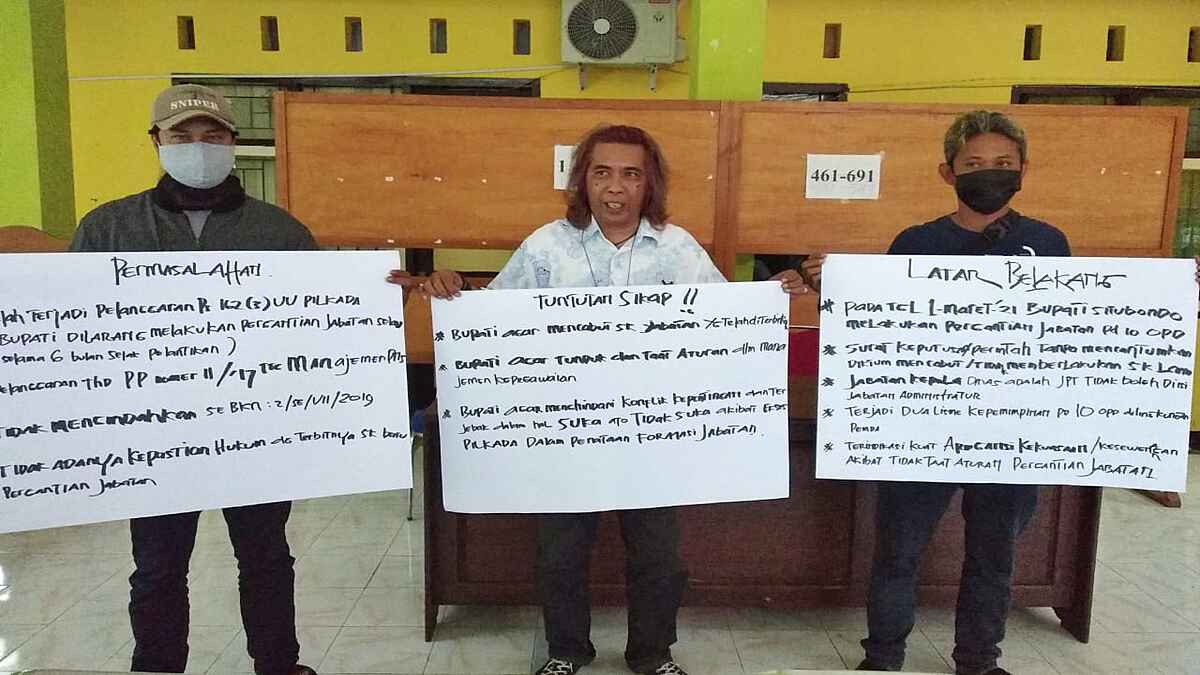 SNIPER
1
461-691
PERMASALAHAN.
lah TERJADI PELANGGARAN Ps 162 (3) UU PILKADA
BUPATI DILARANG MELAKUKAN PERGANTIAN JABATAN
selama 6 bulan sejak pelantikan )
elanggaran thd PP nomer 11/'17 ttg MANAJEMEN PNS
TIDAK MENGINDAHKAN SE BKN : 2/SE/VII/2019
TIDAK ADANYA KEPASTIAN HUKUM dg TERBITNYA SK baru
PERGANTIAN JABATAN
TUNTUTAN SIKAP !!
* BUPATI agar mencabut SK JABATAN yg TELAH diTERBIT
* BUPATI AGAR TUNDUK dan TAAT ATURAN dlm mana
jemen KEPEGAWAIAN
* BUPATI AGAR MENGHINDARI KONFLIK KEPENTINGAN dan TER
JEBAK dalam hal SUKA ATO TIDAK SUKA akibat
PILKADA DALAM PENATAAN FORMASI JABATAN.
LATAR BELAKANG
* PADA TGL 1-MARET-'21 BUPATI SITUBONDO
MELAKUKAN PERGANTIAN JABATAN Pd 10 OPD
* SURAT KEPUTUSAN/PERINTAH TANPA MENCANTUMKAN
DIKTUM MENCABUT/TIDAK MEMBERLAKUKAN SK LAMA
* JABATAN KEPALA DINAS ADALAH JPT TIDAK BOLEH DIISI
JABATAN ADMINISTRATUR
* TERJADI DUALISME KEPEMIMPINAN Pd 10 OPD dilingkungan
PEMDA
* TERINDIKASI KUAT AROGANSI KEKUASAAN/KESEWENANGAN
AKIBAT TIDAK TAAT ATURAN PERGANTIAN JABATAN